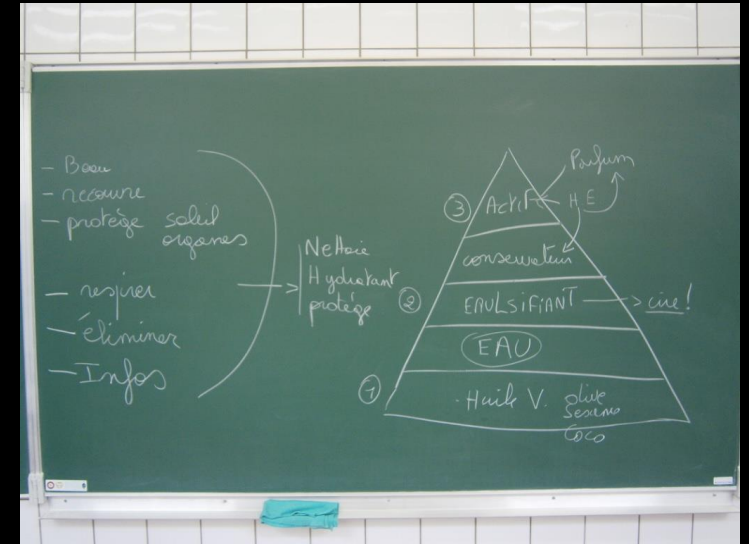 - Beau
- recouvre
- protège soleil
organes
- respirer
- éliminer
- Infos
Nettoie
Hydratant
protège
Parfum
③ Actif H E
conservateur
② EMULSIFIANT → cire!
EAU
① . Huile V. olive
Sesame
Coco